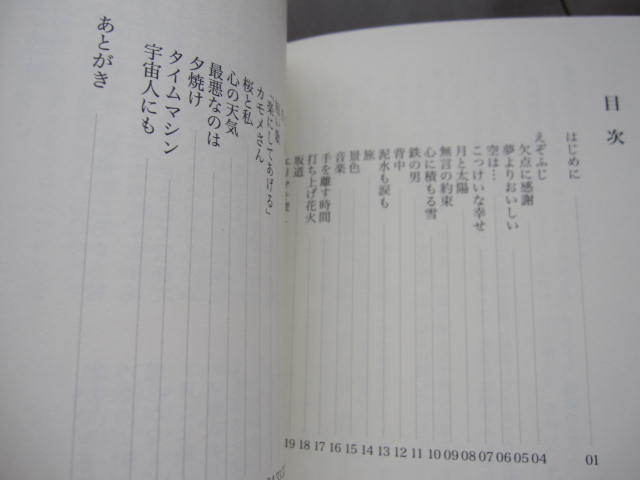 目次
はじめに 01
えぞふじ 04
欠点に感謝 05
夢よりおいしい 06
空は… 07
こっけいな幸せ 08
月と太陽 09
無言の約束 10
心に積もる雪 11
鉄の男 12
背中 13
泥水も涙も 14
旅 15
景色 16
音楽 17
手を離す時間 18
打ち上げ花火 19
坂道
「楽にしてあげる」
カモメさん
桜と私
心の天気
最悪なのは
夕焼け
タイムマシン
宇宙人にも
あとがき